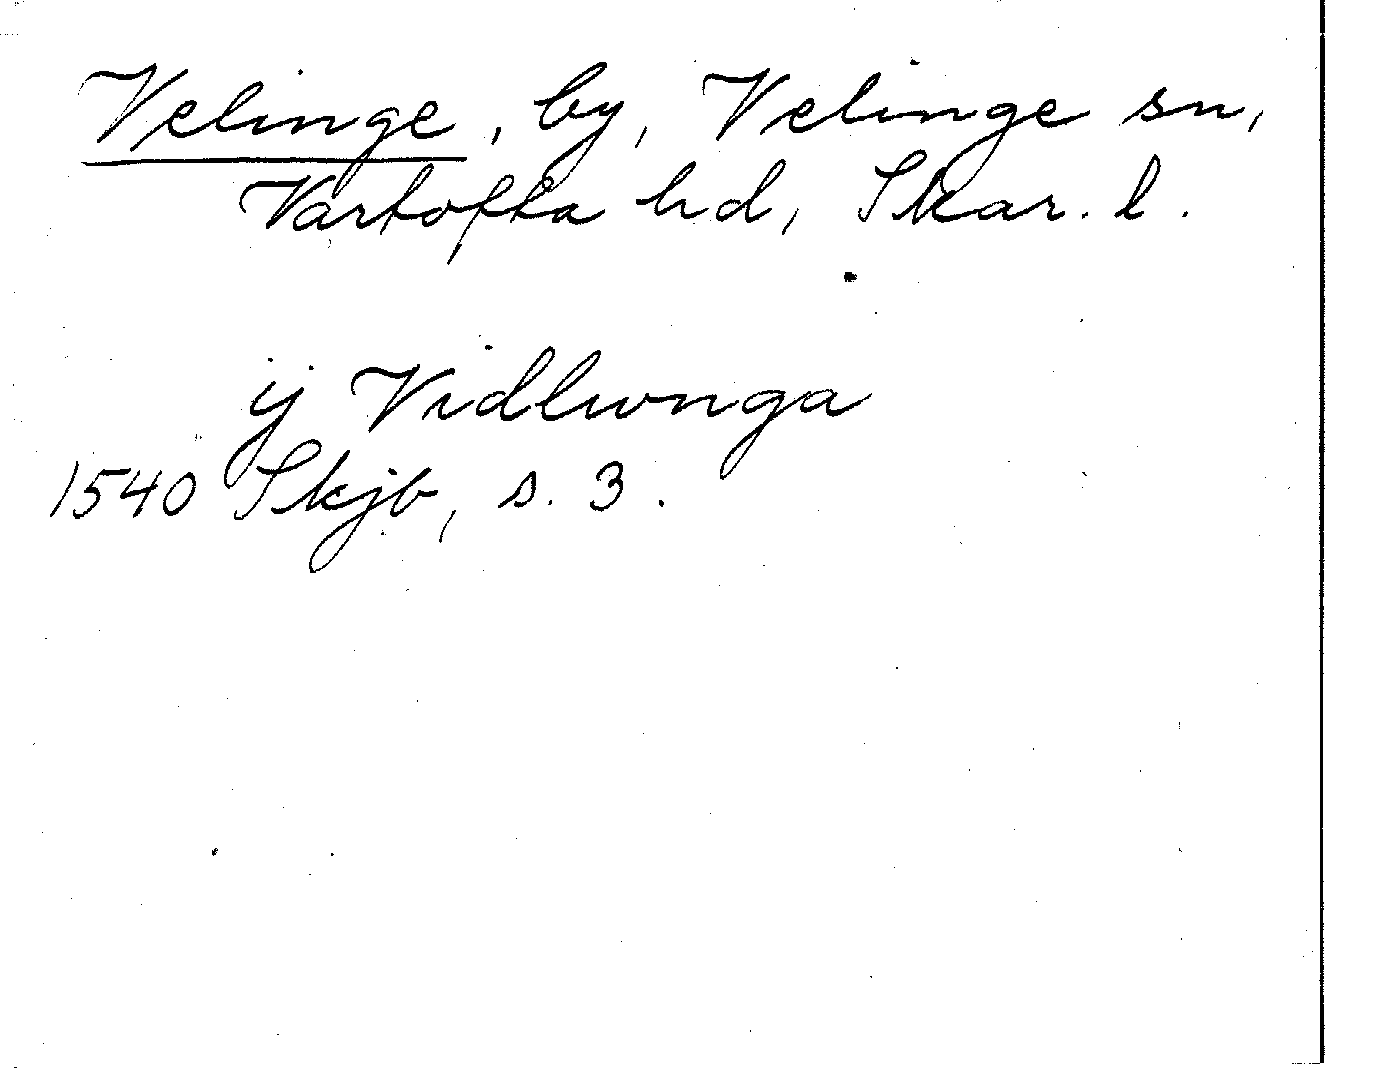 Velinge, by, Velinge sn,
Vartofta hd, Skar. l.
ij Vidlunga
1540 Skjb, s. 3.